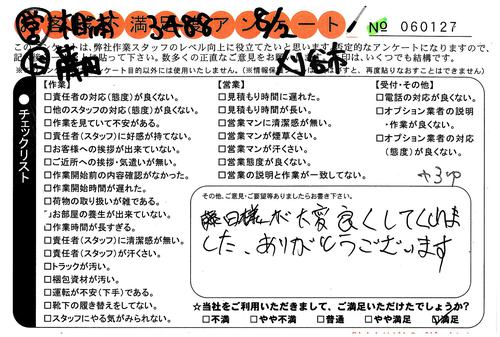 営 相村 3488 8/2
お客様不満足アンケート № 060127
このアンケートは、弊社作業スタッフのレベル向上に役立てたいと思います。否定的なアンケートになりますので、
数多くの正直なご意見をお
アンケート目的以外には使用いたしません。
刈谷市
●チェックリスト
【作業】
□責任者の対応(態度)が良くない。
□他のスタッフの対応(態度)が良くない。
□作業を見ていて不安がある。
□責任者(スタッフ)に好感が持てない。
□お客様への挨拶が出来ていない。
□ご近所への挨拶・気遣いが無い。
□作業開始前の内容確認がなかった。
□作業開始時間が遅れた。
□荷物の取り扱いが雑である。
お部屋の養生が出来ていない。
□作業時間が長すぎる。
□責任者(スタッフ)に清潔感が無い。
□責任者(スタッフ)が汗くさい。
□トラックが汚い。
□梱包資材が汚い。
□運転が不安(下手)である。
□靴下の履き替えをしてない。
□スタッフにやる気がみられない。
【営業】
□見積もり時間に遅れた。
□見積もり時間が長い。
□営業マンに清潔感が無い。
□営業マンが煙草くさい。
□営業マンが汗くさい。
□営業態度が良くない。
□営業の説明と作業が一致してない。
【受付・その他】
□電話の対応が良くない。
□オプション業者の説明
・作業が良くない。
□オプション業者の対応
(態度)が良くない。
+3ap
その他、ご意見・ご要望等ありましたらお書き下さい。
藤田様が大変良くしてくれま
した、ありがとうございます
☆当社をご利用いただきまして、ご満足いただけたでしょうか?
□不満 □やや不満 □普通 □やや満足 □満足